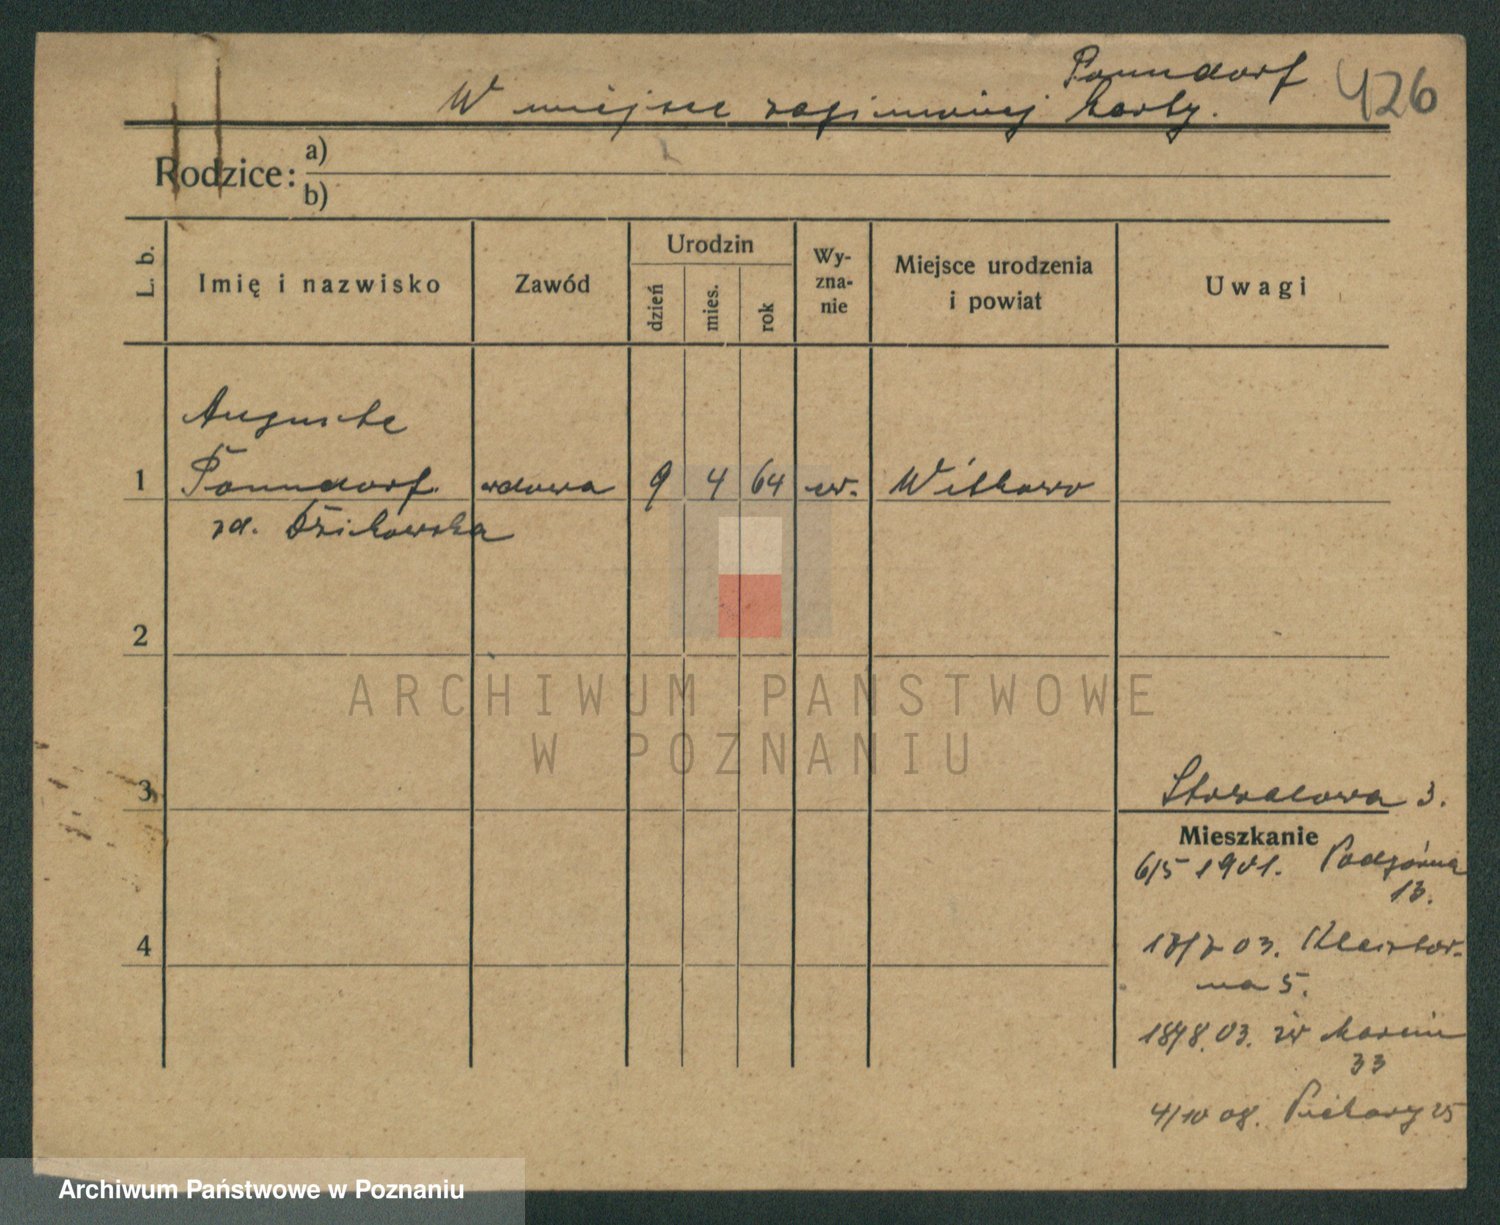 Ponndorf 426
W miejsce zaginionej karty.
Rodzice: a)
b)
L. b.
Imię i nazwisko
Zawód
Urodzin
dzień
mies.
rok
Wy-
zna-
nie
Miejsce urodzenia
i powiat
Uwagi
Auguste
1 Ponndorf wdowa 9 4 64 ew. Witkowo
zd. Dzikowska
2
ARCHIWUM PAŃSTWOWE
W POZNANIU
3
Strzałowa 3.
Mieszkanie
6/5 1901. Podgórna
13.
17/7 03. Klasztor-
na 5.
4
18/8.03. św Marcin
33
4/10 08. Piekary 25
Archiwum Państwowe w Poznaniu